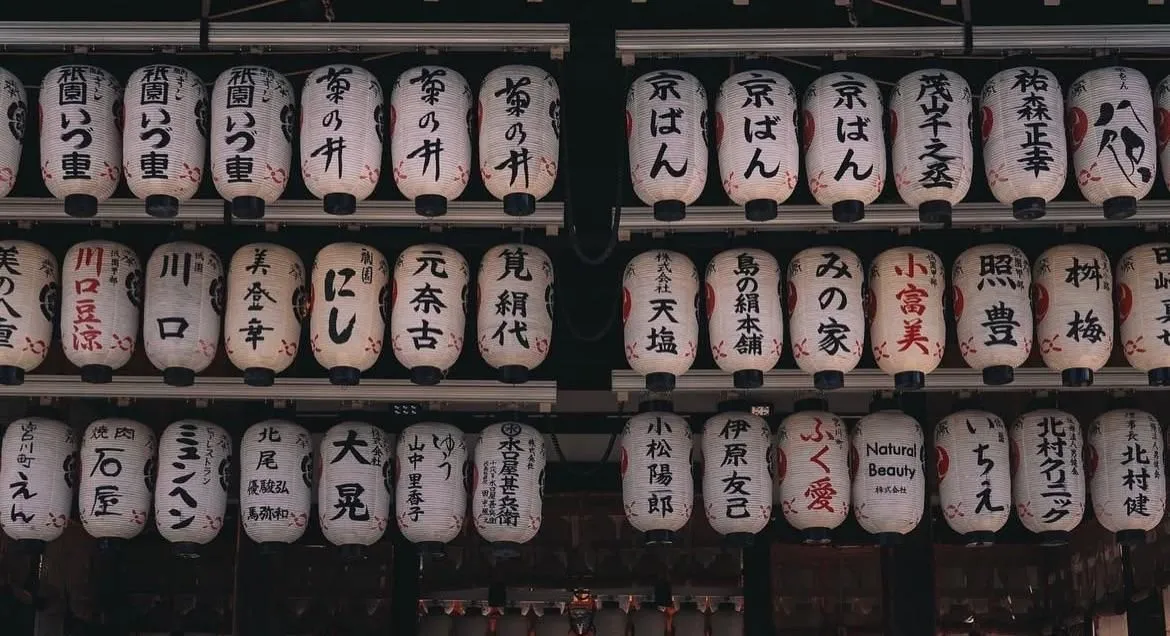 祇園いづ重
祇園いづ重
祇園いづ重
菊の井
菊の井
菊の井
京ばん
京ばん
京ばん
茂山千之丞
祐森正幸
川口豆涼
祇園
川口
美登幸
祇園
にし
元奈古
筧絹代
株式会社
天塩
島の絹本舗
みの家
小富美
照豊
桝梅
宮川町
えん
焼肉
石屋
レストラン
ミュンヘン
北尾
優駿弘
馬弥和
株式会社
大晃
ゆう
山中里香子
水口屋甚兵衛
小松陽郎
伊原友己
ふく愛
Natural
Beauty
株式会社
いちえ
北村クリニック
理事長
北村健